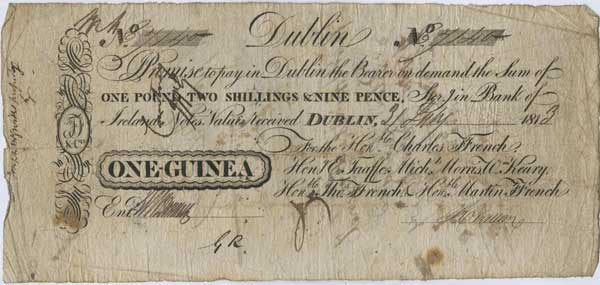 No. Dublin No.
I Promise to pay in Dublin the Bearer on demand the Sum of
ONE POUND, TWO SHILLINGS & NINE PENCE, Ster.g in Bank of
Ireland Notes. Value received DUBLIN, 1813
For the Hon.ble Charles Ffrench,
ONE-GUINEA
Hon.l E. Taaffe, Mich.l Morris, C. Keary,
Hon.ble Tho.s Ffrench & Hon.ble Martin Ffrench
Ent.
G R
Ff
& Co.